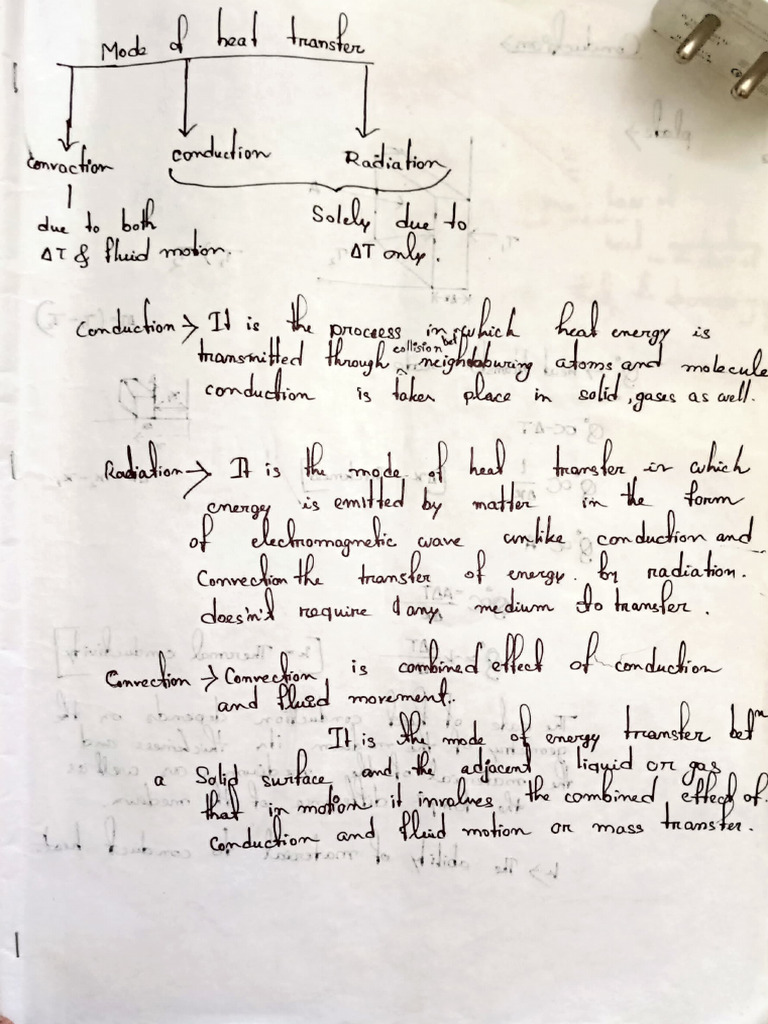 Mode of heat transfer
Convaction conduction Radiation
due to both
ΔT & fluid motion.
Solely due to
ΔT only.
Conduction → It is the process in which heat energy is
transmitted through collision betn neighbouring atoms and molecule
conduction is taken place in solid, gases as well.
Radiation → It is the mode of heat transfer in which
energy is emitted by matter in the form
of electromagnetic wave unlike conduction and
Convection the transfer of energy. by radiation.
does'n't require any medium to transfer.
Convection → Convection is combined effect of conduction
and fluid movement.
It is the mode of energy transfer betn
a Solid surface and the adjacent liquid or gas
that in motion it involves the combined effect of.
Conduction and fluid motion or mass transfer.